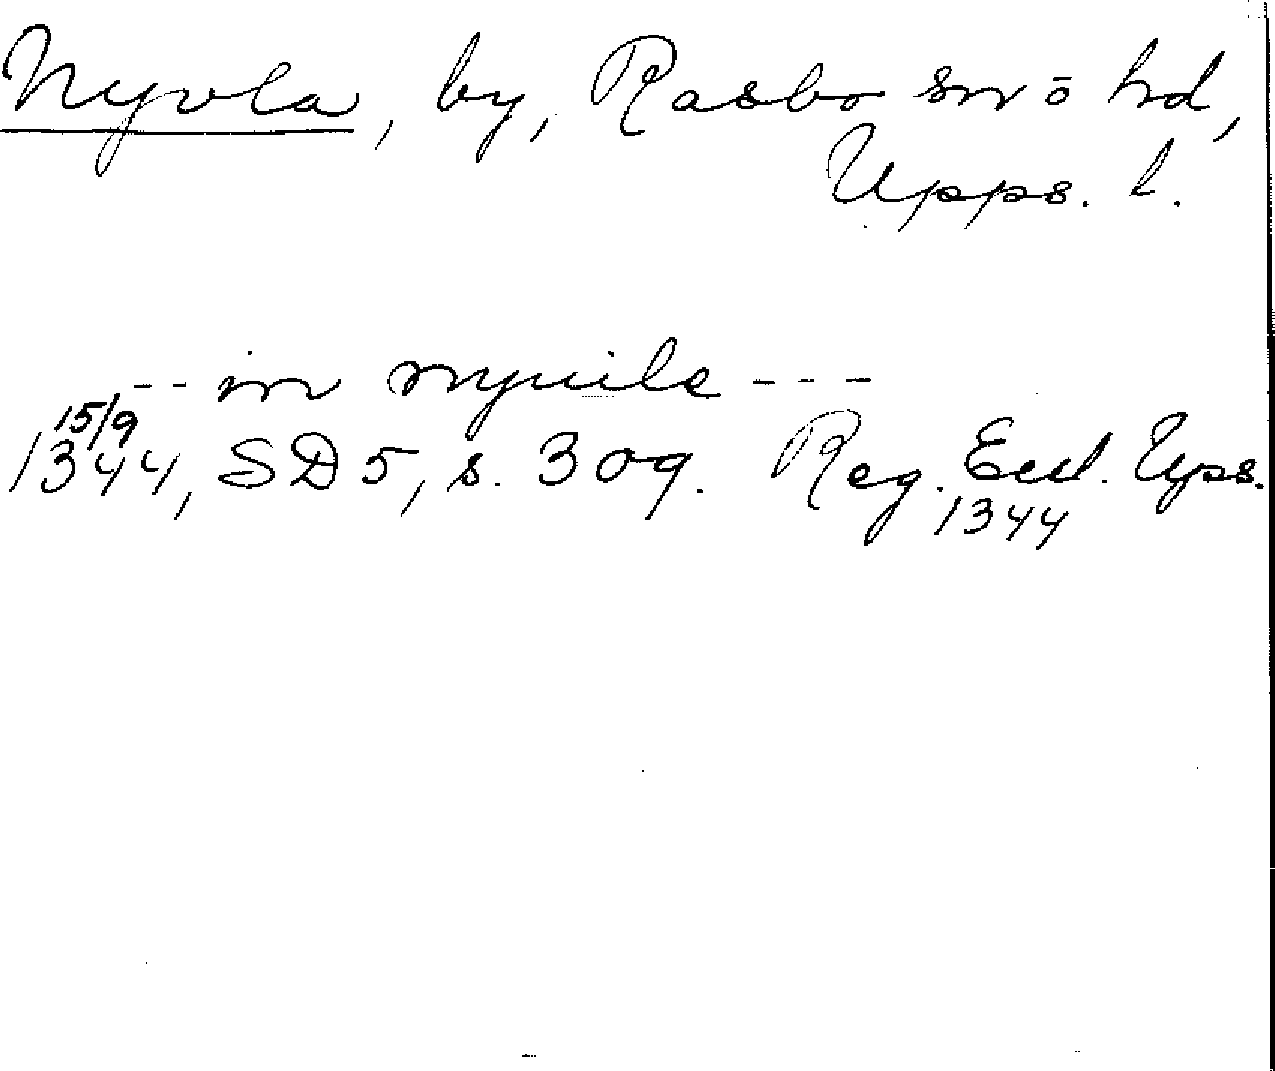 Nyvla, by, Rasbo sn o hd,
Upps. l.
-- in nyuile ---
15/9
1344, SD 5, s. 309. Reg. Eccl. Ups.
1344